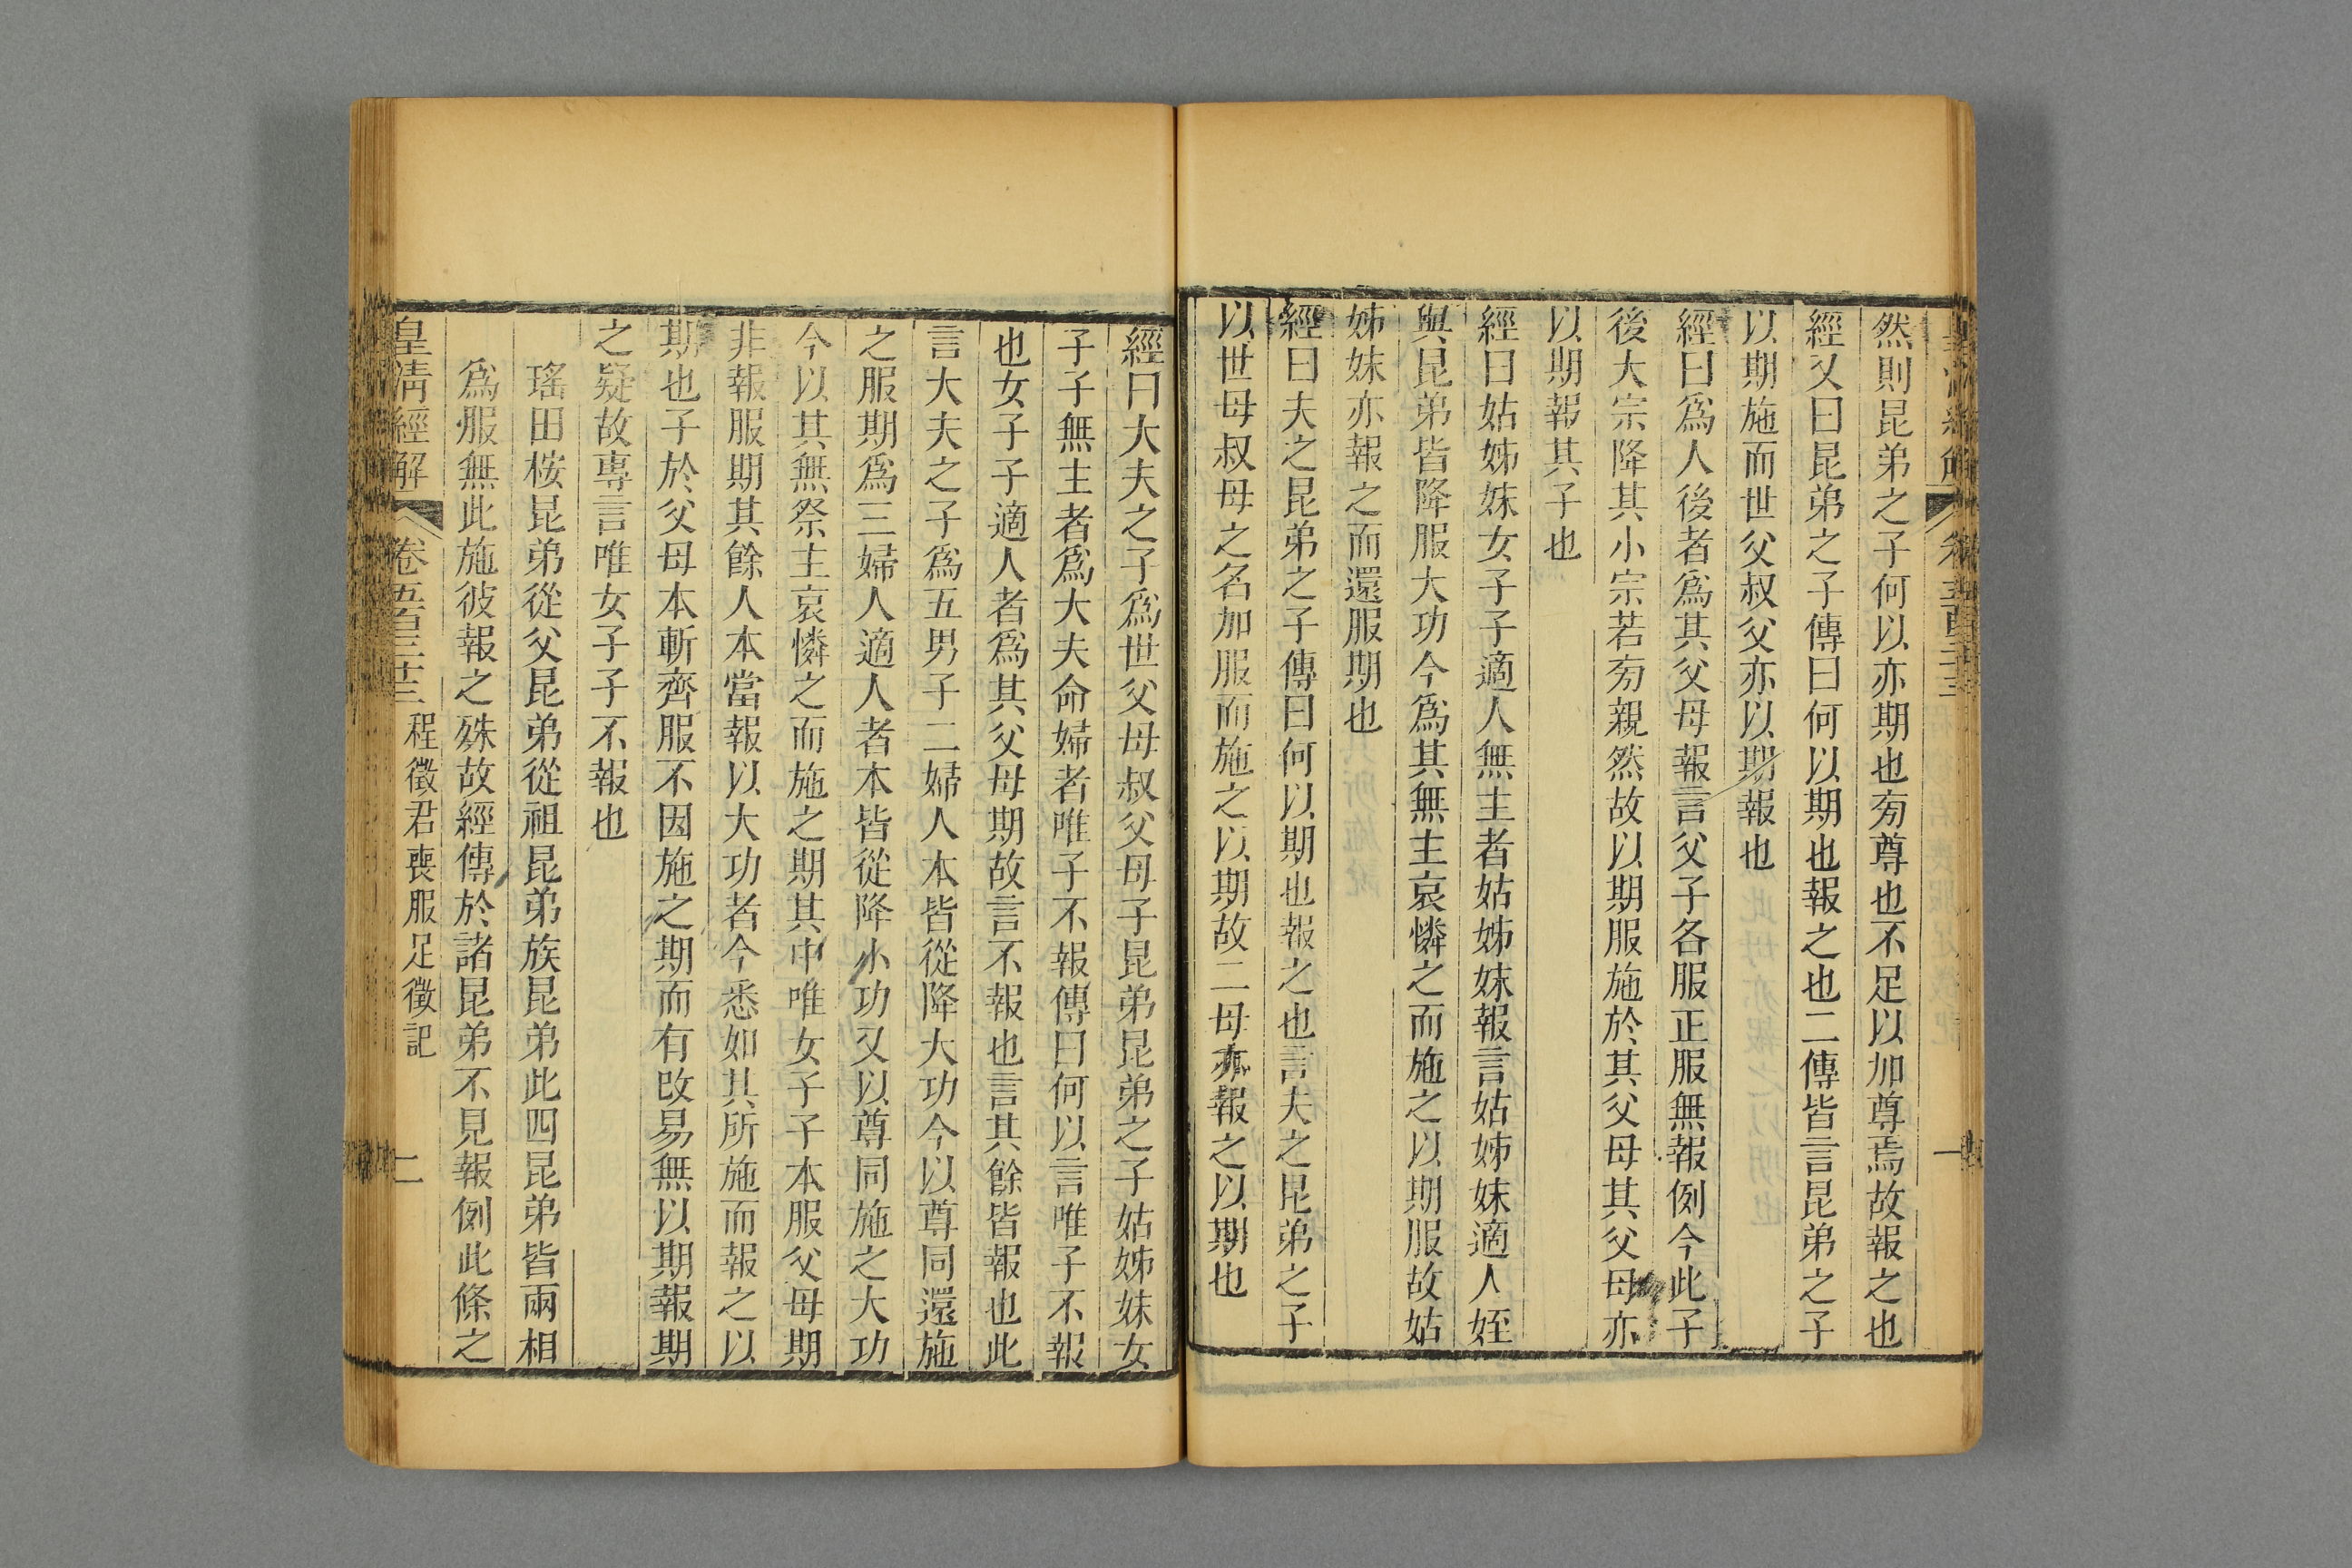 然則昆弟之子何以亦期也旁尊也不足以加尊焉故報之也
經又曰昆弟之子傳曰何以期也報之也二傳皆言昆弟之子
以期施而世父叔父亦以期報也
經曰爲人後者爲其父母報言父子各服正服無報例今此子
後大宗降其小宗若旁親然故以期服施於其父母其父母亦
以期報其子也
經曰姑姊妹女子子適人無主者姑姊妹報言姑姊妹適人姪
與昆弟皆降服大功今爲其無主哀憐之而施之以期服故姑
姊妹亦報之而還服期也
經曰夫之昆弟之子傳曰何以期也報之也言夫之昆弟之子
以世母叔母之名加服而施之以期故二母亦報之以期也
經曰大夫之子爲世父母叔父母子昆弟昆弟之子姑姊妹女
子子無主者爲大夫命婦者唯子不報傳曰何以言唯子不報
也女子子適人者爲其父母期故言不報也言其餘皆報也此
言大夫之子爲五男子二婦人本皆從降大功今以尊同還施
之服期爲三婦人適人者本皆從降小功又以尊同施之大功
今以其無祭主哀憐之而施之期其中唯女子子本服父母期
非報服期其餘人本當報以大功者今悉如其所施而報之以
期也子於父母本斬齊服不因施之期而有改易無以期報期
之疑故專言唯女子子不報也
瑤田桉昆弟從父昆弟從祖昆弟族昆弟此四昆弟皆兩相
爲服無此施彼報之殊故經傳於諸昆弟不見報例此條之
皇清經解 卷五百三十三 程徵君喪服足徵記 二